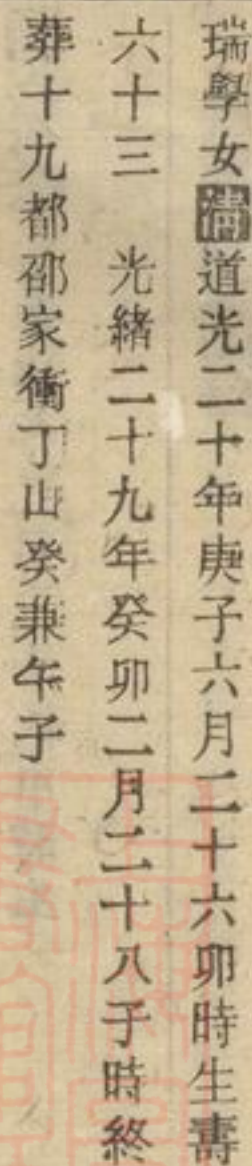 瑞學女清道光二十年庚子六月二十六卯時生壽
六十三 光緒二十九年癸卯二月二十八子時終
葬十九都邵家衝丁山癸兼午子